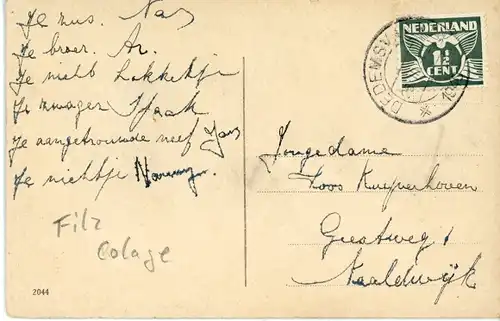 Je zus. Nas
Je broer. Ar.
Je nicht Lokkekje
Je zwager Sjaak
Je aangetrouwde neef Jans
Je nichtje
Filz
Colage
2044
DEDEMSV
NEDERLAND
1½
CENT
Jongedame
Koos Kuyvenhoven
Geestweg
Naaldwijk